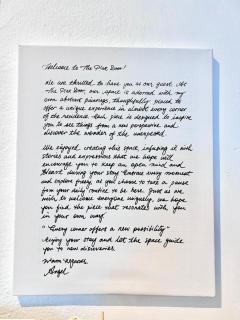 Welcome to The Pine Door!
We are thrilled to have you as our guest. At
The Pine Door, our space is adorned with my
own abstract paintings, thoughtfully placed to
offer a unique experience in almost every corner
of the residence. Each piece is designed to inspire
you to see things from a new perspective and
discover the wonder of the unexpected.
We enjoyed creating this space, infusing it with
stories and expressions that we hope will
encourage you to keep an open mind and
heart during your stay. Embrace every moment
and explore freely, as you choose to take a pause
from your daily routine to be here. Just as we
wish to welcome everyone uniquely, we hope
you find the piece that resonates with you
in your own way.
"Every corner offers a new possibility"
Enjoy your stay and let the space guide
you to new discoveries.
Warm Regards,
Angel